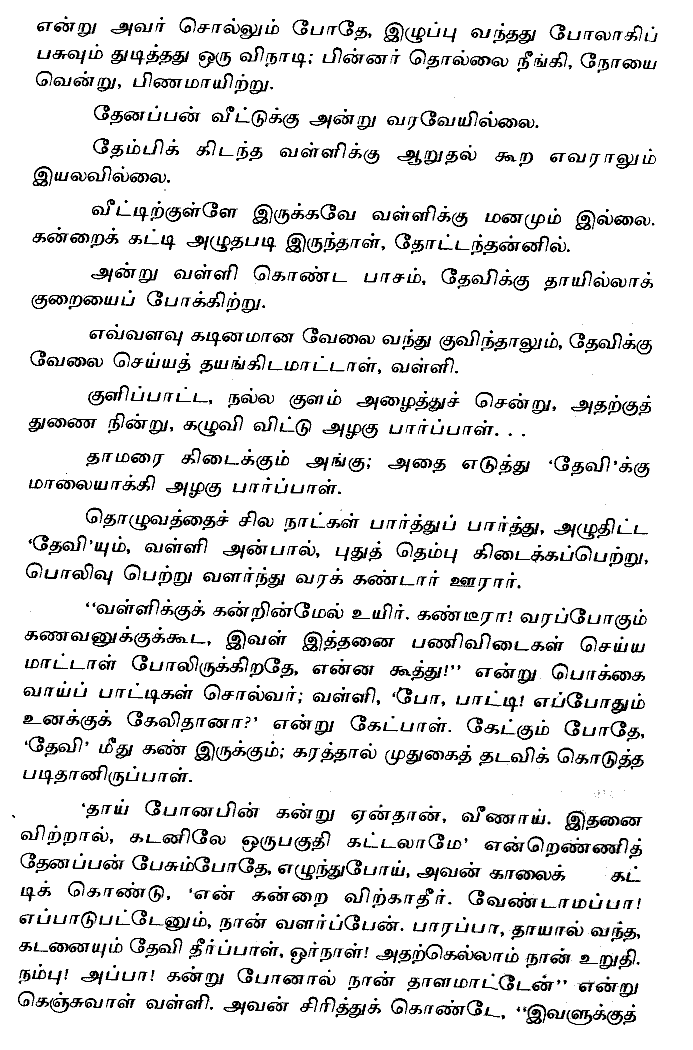 என்று அவர் சொல்லும் போதே, இழுப்பு வந்தது போலாகிப்
பசுவும் துடித்தது ஒரு விநாடி; பின்னர் தொல்லை நீங்கி, நோயை
வென்று, பிணமாயிற்று.
தேனப்பன் வீட்டுக்கு அன்று வரவேயில்லை.
தேம்பிக் கிடந்த வள்ளிக்கு ஆறுதல் கூற எவராலும்
இயலவில்லை.
வீட்டிற்குள்ளே இருக்கவே வள்ளிக்கு மனமும் இல்லை.
கன்றைக் கட்டி அழுதபடி இருந்தாள், தோட்டந்தன்னில்.
அன்று வள்ளி கொண்ட பாசம், தேவிக்கு தாயில்லாக்
குறையைப் போக்கிற்று.
எவ்வளவு கடினமான வேலை வந்து குவிந்தாலும், தேவிக்கு
வேலை செய்யத் தயங்கிடமாட்டாள், வள்ளி.
குளிப்பாட்ட, நல்ல குளம் அழைத்துச் சென்று, அதற்குத்
துணை நின்று, கழுவி விட்டு அழகு பார்ப்பாள்...
தாமரை கிடைக்கும் அங்கு; அதை எடுத்து ‘தேவி’க்கு
மாலையாக்கி அழகு பார்ப்பாள்.
தொழுவத்தைச் சில நாட்கள் பார்த்துப் பார்த்து, அழுதிட்ட
‘தேவி’யும், வள்ளி அன்பால், புதுத் தெம்பு கிடைக்கப்பெற்று,
பொலிவு பெற்று வளர்ந்து வரக் கண்டார் ஊரார்.
“வள்ளிக்குக் கன்றின்மேல் உயிர். கண்டீரா! வரப்போகும்
கணவனுக்குக்கூட, இவள் இத்தனை பணிவிடைகள் செய்ய
மாட்டாள் போலிருக்கிறதே, என்ன கூத்து!” என்று பொக்கை
வாய்ப் பாட்டிகள் சொல்வர்; வள்ளி, ‘போ, பாட்டி! எப்போதும்
உனக்குக் கேலிதானா?’ என்று கேட்பாள். கேட்கும் போதே,
‘தேவி’ மீது கண் இருக்கும்; கரத்தால் முதுகைத் தடவிக் கொடுத்த
படிதானிருப்பாள்.
‘தாய் போனபின் கன்று ஏன்தான், வீணாய். இதனை
விற்றால், கடனிலே ஒருபகுதி கட்டலாமே’ என்றெண்ணித்
தேனப்பன் பேசும்போதே, எழுந்துபோய், அவன் காலைக் கட்
டிக் கொண்டு, ‘என் கன்றை விற்காதீர். வேண்டாமப்பா!
எப்பாடுபட்டேனும், நான் வளர்ப்பேன். பாரப்பா, தாயால் வந்த,
கடனையும் தேவி தீர்ப்பாள், ஓர்நாள்! அதற்கெல்லாம் நான் உறுதி.
நம்பு! அப்பா! கன்று போனால் நான் தாளமாட்டேன்” என்று
கெஞ்சுவாள் வள்ளி. அவன் சிரித்துக் கொண்டே, “இவளுக்குத்